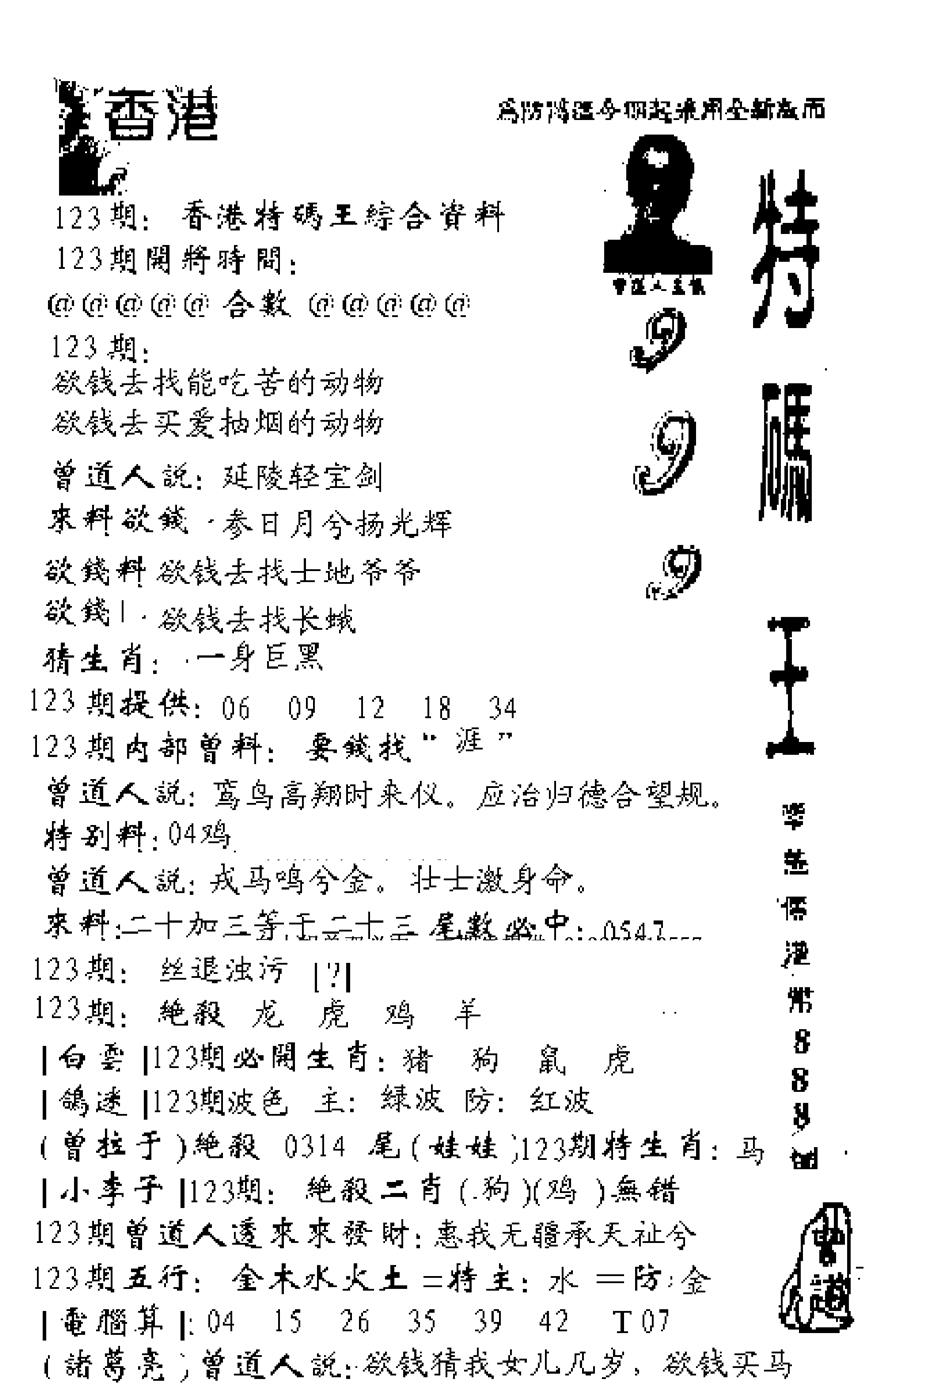 香港
爲防濫今期起採用全新版面
123期：香港特碼王綜合資料
123期開將時間：
@@@@@合數@@@@@
123期：
欲钱去找能吃苦的动物
欲钱去买爱抽烟的动物
曾道人説：延陵轻宝剑
來料欲錢·参日月兮扬光辉
欲錢料欲钱去找土地爷爷
欲錢|·欲钱去找长蛾
猜生肖：·一身巨黑
123期提供：06 09 12 18 34
123期内部曾料：要錢找“涯”
曾道人説：鸾鸟高翔时来仪。应治归德合望规。
特别料：04鸡
曾道人説：戎马鸣兮金。壮士激身命。
來料：二十加三等于二十三尾數必中：0547
123期：丝退浊污|?|
123期：絶殺 龙 虎 鸡 羊
|白雲|123期必開生肖：猪 狗 鼠 虎
|鴿迷|123期波色 主：绿波 防：红波
(曾拉于)絶殺 0314 尾(娃娃)123期特生肖：马
|小李子|123期：絶殺二肖(.狗)(鸡)無错
123期曾道人透來來發財：惠我无疆承天祉兮
123期五行：金木水火土=特主：水=防：金
|電腦算|：04 15 26 35 39 42 T07
(諸葛亮)曾道人説：欲钱猜我女儿几岁，欲钱买马
曾道人主棋
9
9
9
特
碼
王
港
幣
8
8
8
曾
道
人